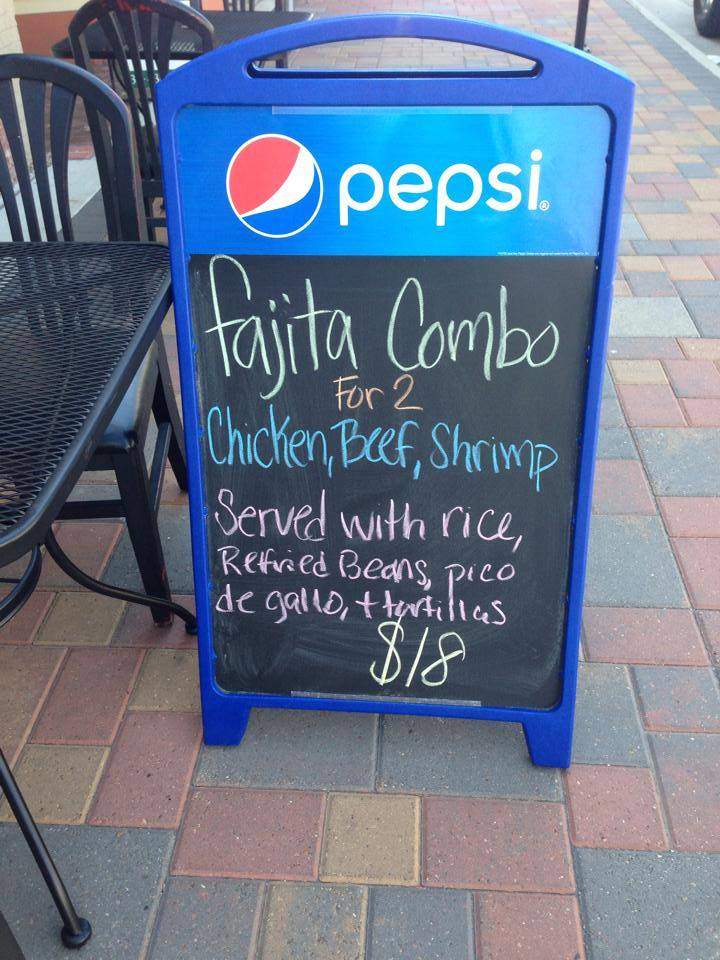 pepsi®
fajita Combo
For 2
Chicken, Beef, Shrimp
Served with rice,
Refried Beans, pico
de gallo, + tortillas
$18